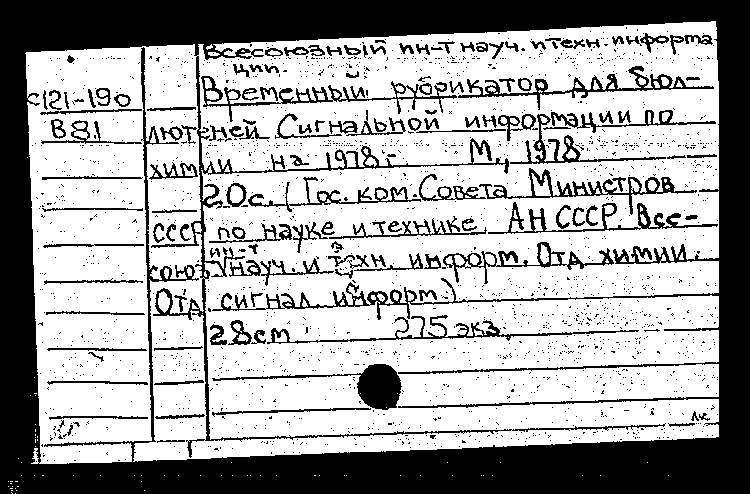 Всесоюзный ин-т науч. и техн. информа-
ции.
С121-190
Временный рубрикатор для бюл-
В81
лютеней Сигнальной информации по
химии на 1978 г. М., 1978
20с. (Гос. ком. Совета Министров
СССР по науке и технике. АН СССР. Все-
союз. ин-т науч. и техн. информ. Отд. химии.
Отд. сигнал. информ.)
28см 275 экз.